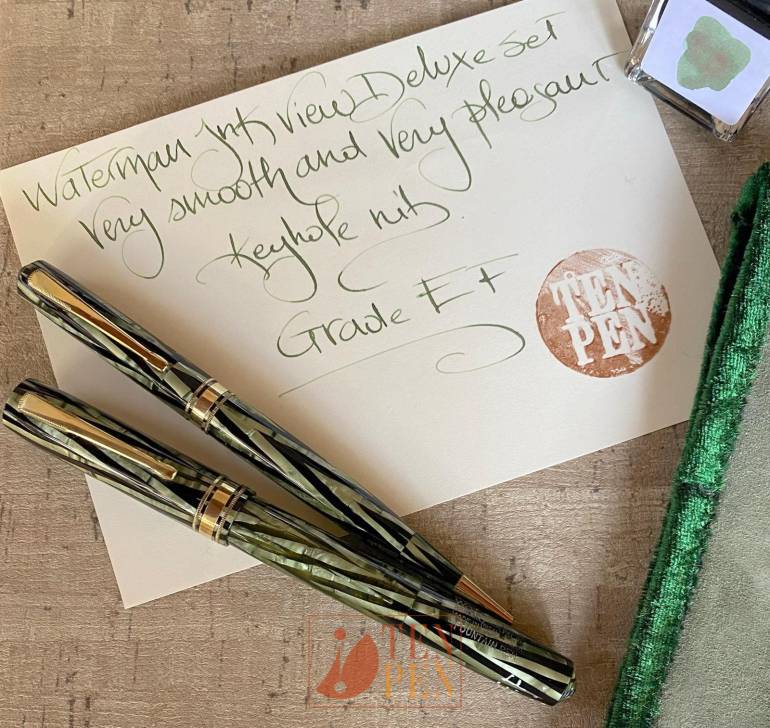 Waterman Ink View Deluxe set
Very smooth and very pleasant
Keyhole nib.
Grade EF
TEN
PEN
FOUNTAIN PEN
TEN
PEN